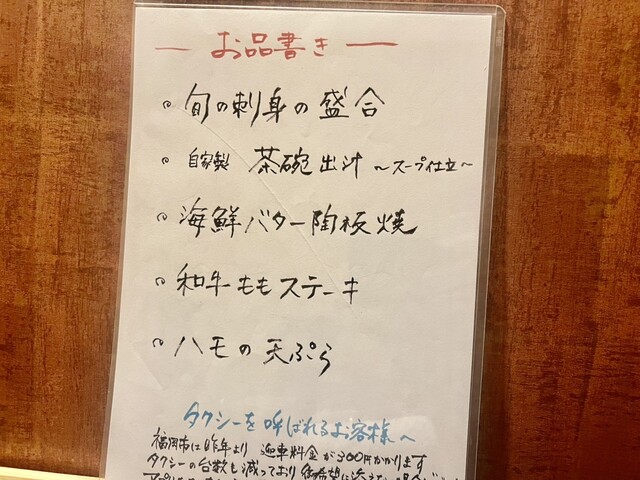 ー お品書き ー
旬の刺身の盛合
自家製 茶碗出汁 〜スープ仕立〜
海鮮バター陶板焼
和牛ももステーキ
ハモの天ぷら
タクシーを呼ばれるお客様へ
福岡市は昨年より 迎車料金が300円かかります
タクシーの台数も減っており 御希望に